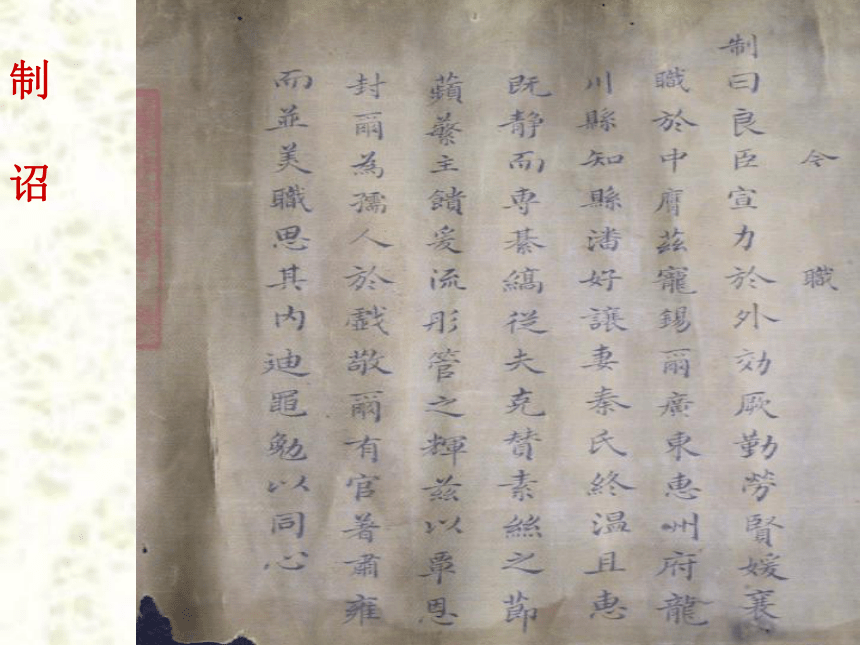 制
诏
令職
制曰良臣宣力於外効厥勤勞賢媛襄
職於中膺茲寵錫爾廣東惠州府龍
川縣知縣潘好讓妻秦氏終温且惠
既静而專綦縞從夫克贊素絲之節
蘋蘩主饋爰流彤管之輝茲以覃恩
封爾為孺人於戲敬爾有官著肅雍
而並美職思其內迪黽勉以同心